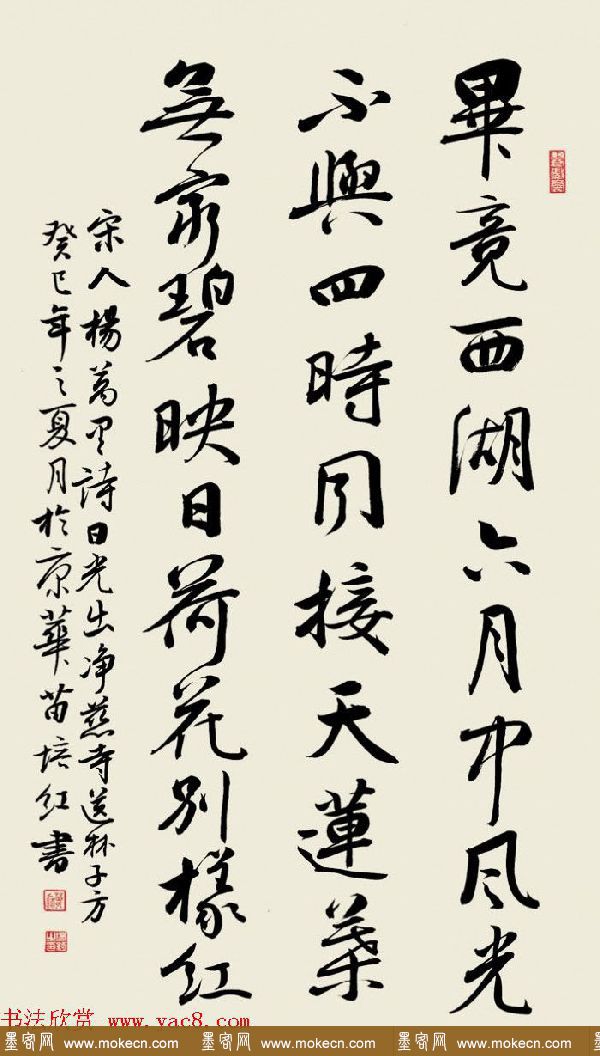 畢竟西湖六月中风光
不與四時同接天蓮葉
無窮碧映日荷花別樣红
宋人楊萬里詩日光出净慈寺送林子方
癸巳年之夏月於京華苗培红書
书法欣赏 www.yac8.com
墨客网 www.mokecn.com 墨客网 www.mokecn.com 墨客网 www.mokecn.com